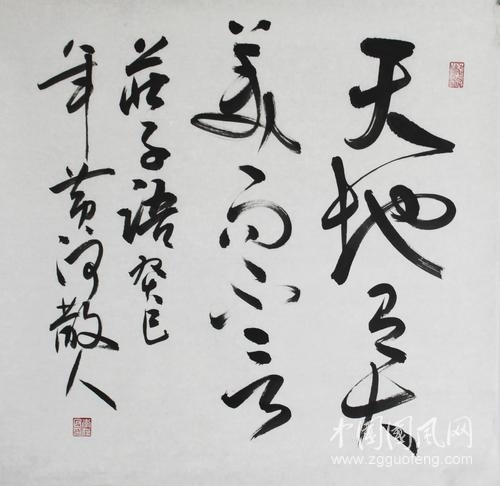 天地有大
美而不言
莊子語癸巳
年黄河散人
中国国风网
www.zgguofeng.com